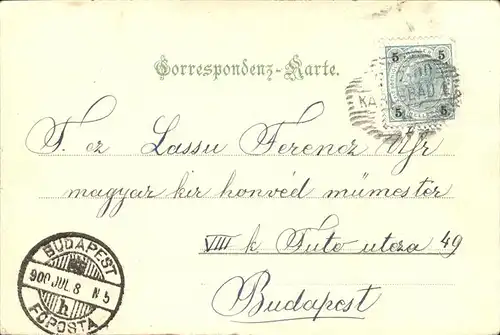 Correspondenz-Karte.
5 5
KA BAD
5 5
T. cz Lassu Ferencz Úr
magyar kir honvéd műmester
VIII k Futo utcza 49
Budapest
BUDAPEST
900 JUL 8 N 5
h
FŐPOSTA